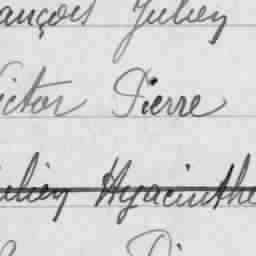 ançois Julien
ictor Pierre
ulien Hyacinthe